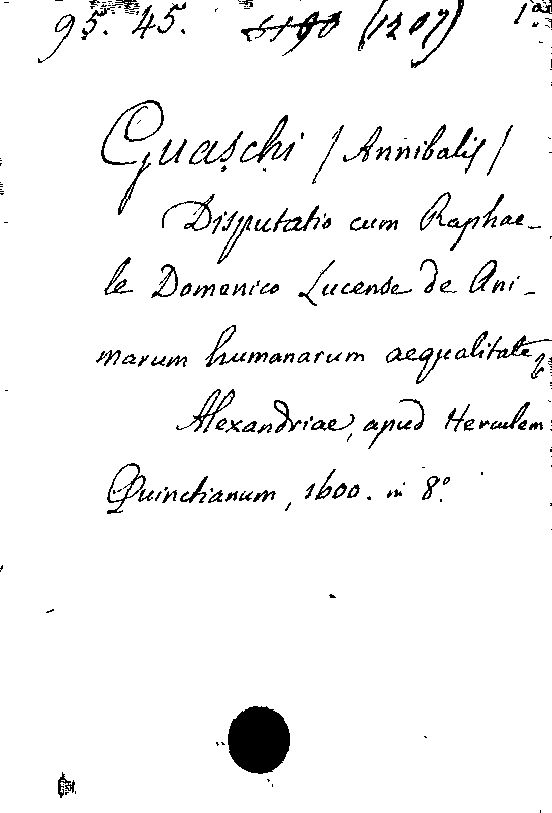 95. 45. (1207) 1a
Guaschi (Annibalis)
Disputatio cum Raphae-
le Domenico Lucense de Ani-
marum humanarum aequalitate,
Alexandriae, apud Herculem
Quinctianum, 1600. in 8.º